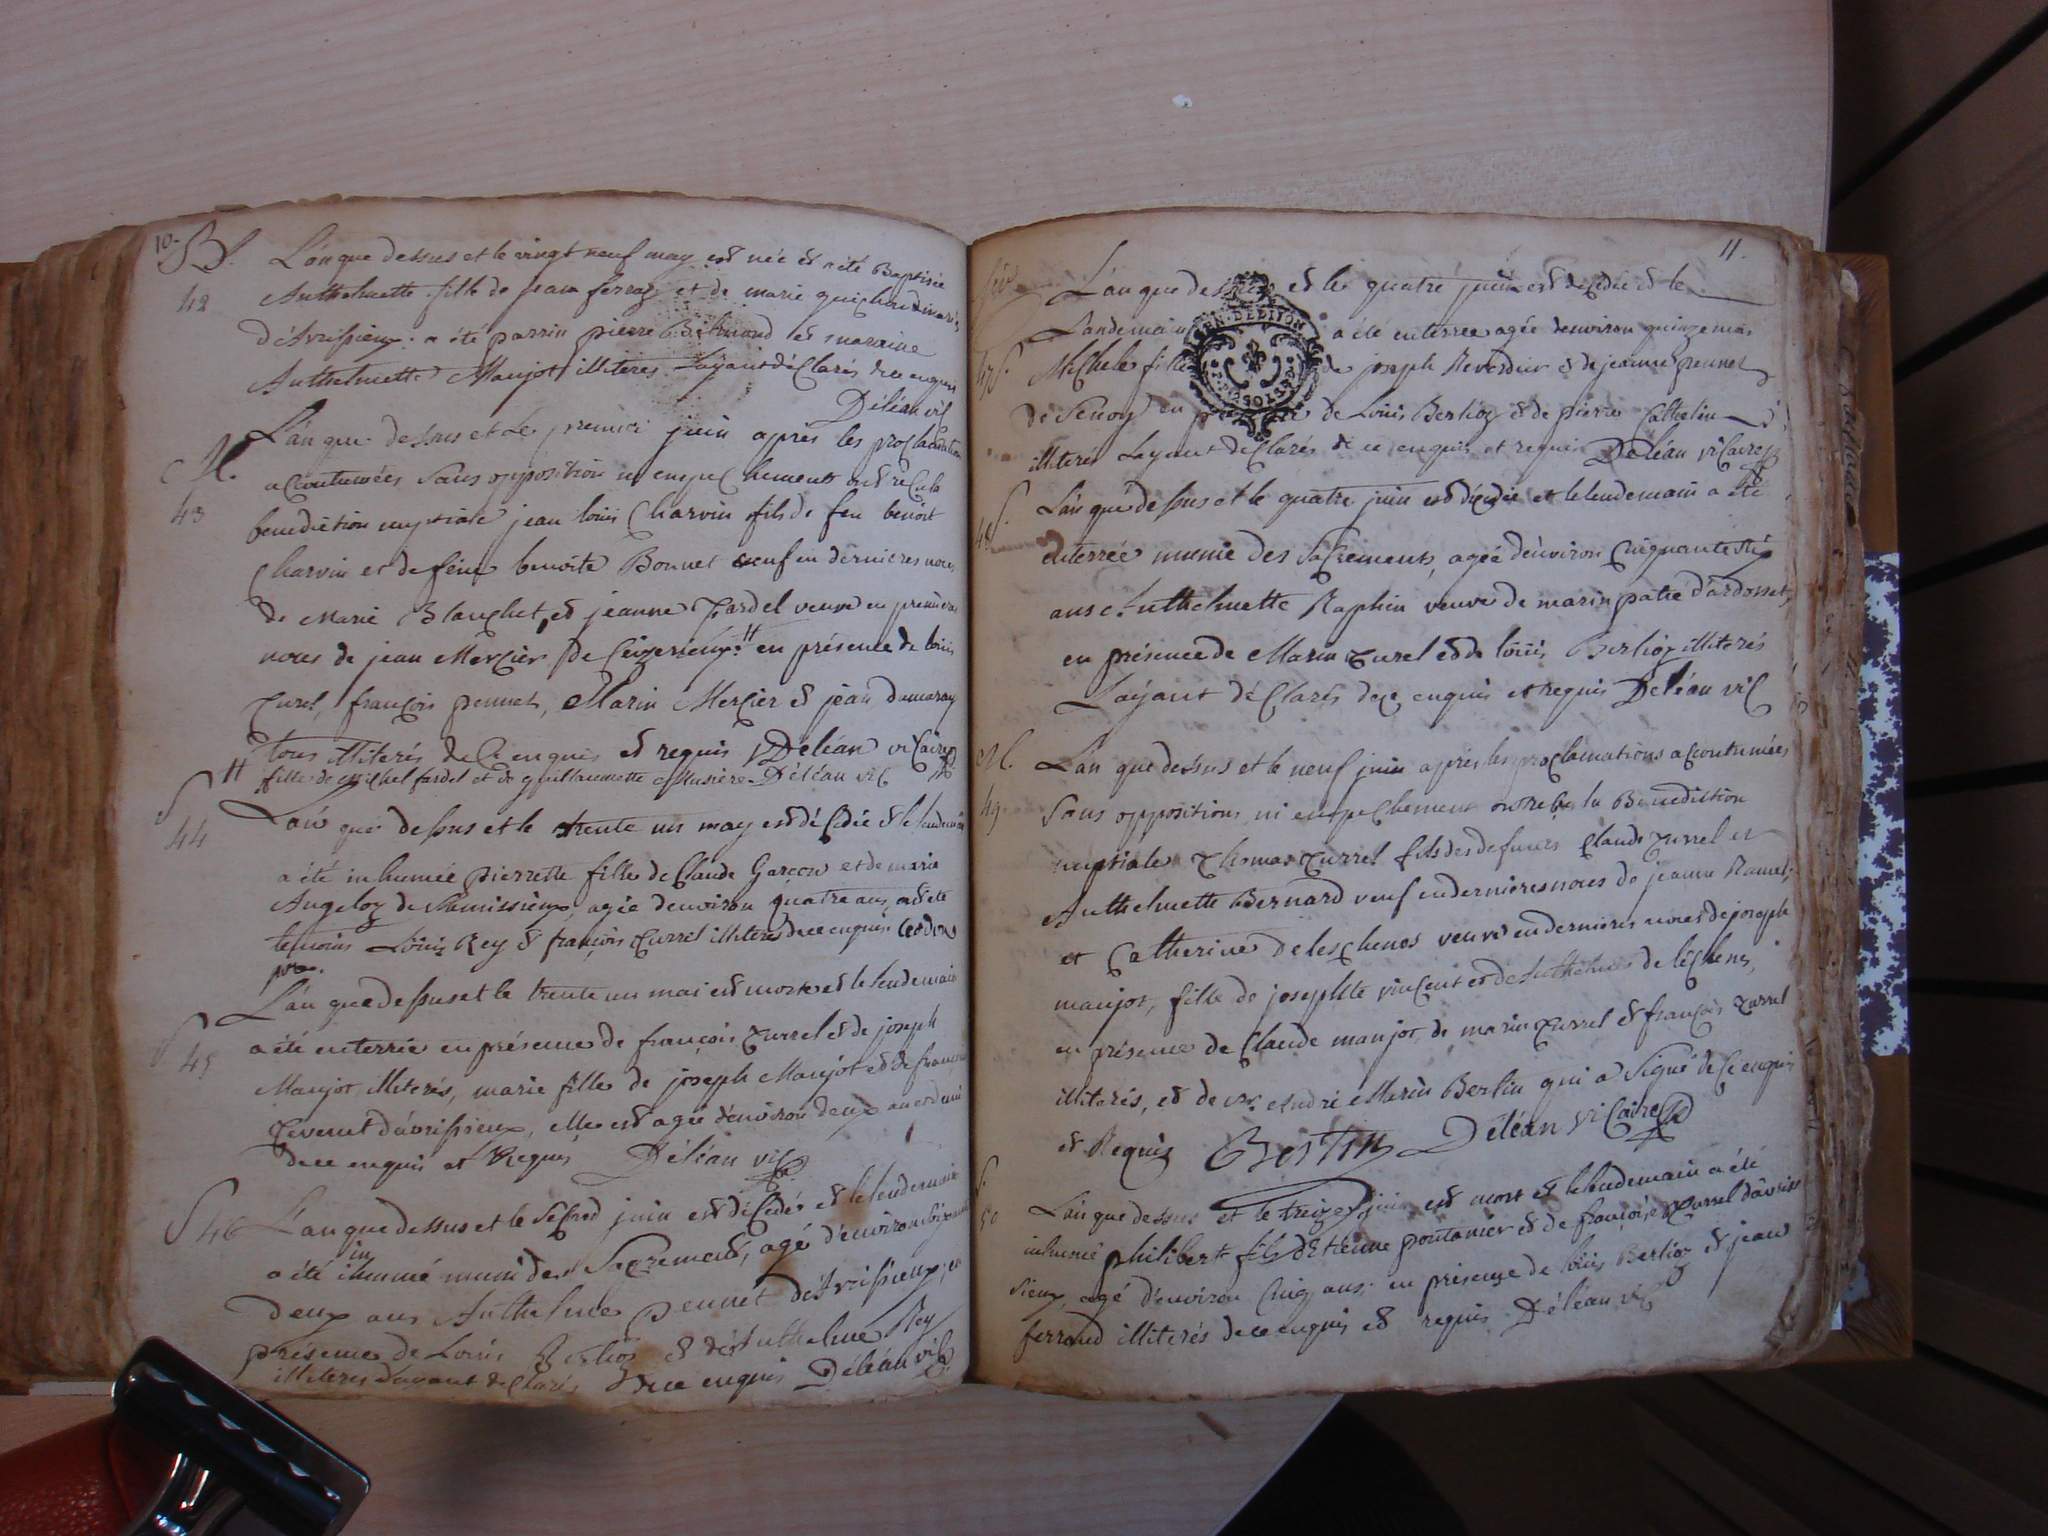 10.
B.
42
L'an que dessus et le vingt neuf may est née et a été Baptisée
Anthelmette fille de jean ferraz et de marie guichard mariés
d'Avrissieux. a été parrin pierre Berthmond et maraine
Anthelmette Maujot illiteres L'ayant déClarés de ce enquis
Déléan vic
M.
43
L'an que dessus et Le premier juin après les proclamations
aCoutumées, Sans opposition ni empeChement ont reCu la
benediction nuptiale jean louis Charvin fils de feu benoit
Charvin et de feüe benoite Bonnet veuf en dernieres noces
de Marie Blanchet, et jeanne fardel veuve en premieres
noces de jean MerCier de Ceizerieux. # en présence de louis
Curel, françois pennet, Marin MerCier et jean dumaray
tous illiterés de Ce enquis et requis Déléan viCaire
# fille de michel fardel et de guillaumette Musiere. Déléan vic
S
44
L'an que dessus et le trente un may est déCedée et le lendemain
a été inhumée pierrette fille de Claude Garcon et de marie
Angeloz de agée d'environ quatre ans, ont été
temoins Loüis Rey et françois Currel illiteres de ce enquis
S
45
L'an que dessus et le trente un mai est morte et le lendemain
a été enterrée en présence de françois Currel et de joseph
Maujot illiterés, marie fille de joseph Maujot et de françoise
d'avrissieux, elle est agée d'environ deux ans et demi
de ce enquis et Requis Déléan vic
S 46
L'an que dessus et le SeCond juin est déCedé et le lendemain
a été inhumé muni des Sacrements, agé d'environ
deux ans Anthelme pennet d'Avrissieux, en
présence de Louis Berlioz et d'Anthelme Rey
illiteres L'ayant déClarés de ce enquis Déléan vic
11.
47 S.
L'an que dessus et le quatre juin est deCedée et le
Landemain a été enterrée agée d'environ quinze mois
MiChele fille de joseph Reverdier et de jeanne pennet
de Senoy en présence de Louis Berlioz et de pierre Cathelin
illiterés Layant déClarés de ce enquis et requis Déléan viCaire
S.
48
L'an que dessus et le quatre juin est déCedée et le lendemain a été
enterrée munie des SaCrements, agée d'environ Cinquante six
ans Anthelmette Raphin veuve de marin patré d'ardosset,
en présence de Marin Curel et de loüis Berlioz illiterés
L'ayant déClarés de Ce enquis et requis Déléan viC
M.
49.
L'an que dessus et le neuf juin après les proclamations aCcoutumées
Sans oppositions, ni empeChement ont reçu la Benediction
nuptiale Thomas Currel fils des defuncts Claude Currel et
Anthelmette Bernard veuf en dernieres noces de jeanne Ramel,
et Catherine delesChenes veuve en dernieres noces de joseph
maujot, fille de josephte vinCent et d'Anthelme de léChenes,
en présence de Claude maujot, de marin Currel et françois Currel
illiterés, et de mr. André Marin Berlin qui a Signé de Ce enquis
et Requis Berlin Déléan viCaire
S.
50
L'an que dessus et le treize juin est mort et le lendemain a été
inhumé philibert fils d'Etienne pontanier et de françoise Currel d'avris
sieux, agé d'environ Cinq ans; en présence de loüis Berlioz et jean
ferrand illiterés de ce enquis et requis Déléan vic
GEN. DE DIJON